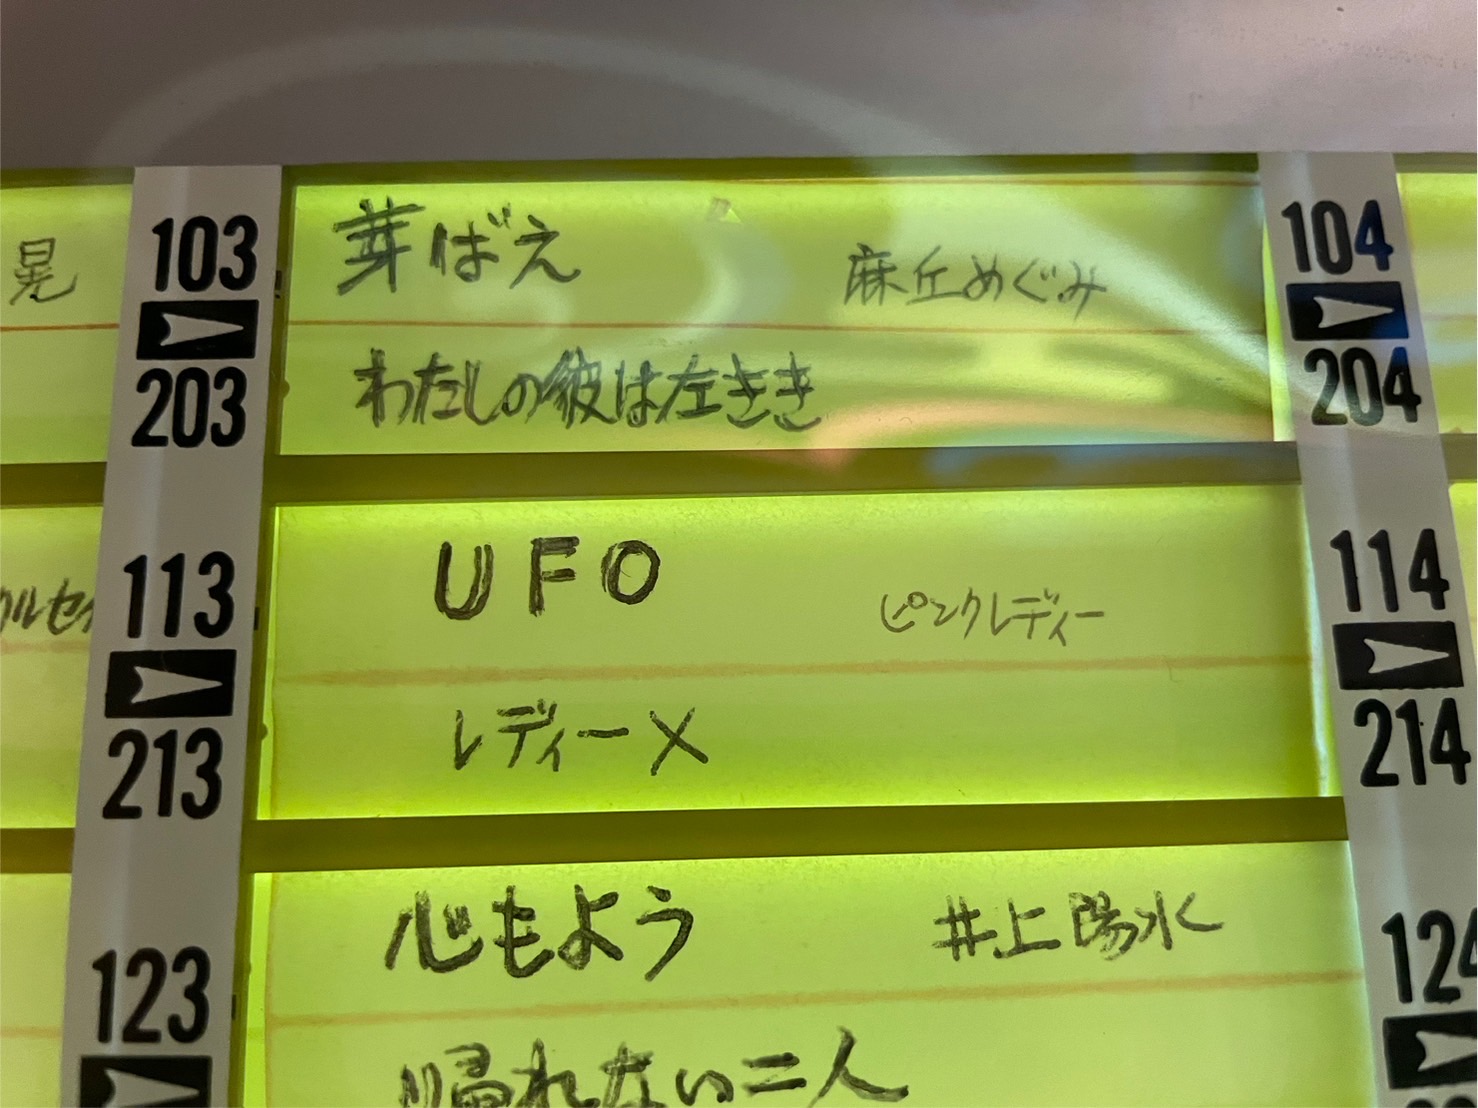 晃
103
203
芽ばえ 麻丘めぐみ
わたしの彼は左きき
104
204
113
213
UFO ピンクレディー
レディーX
114
214
ルセ
123
心もよう 井上陽水
帰れない二人
124